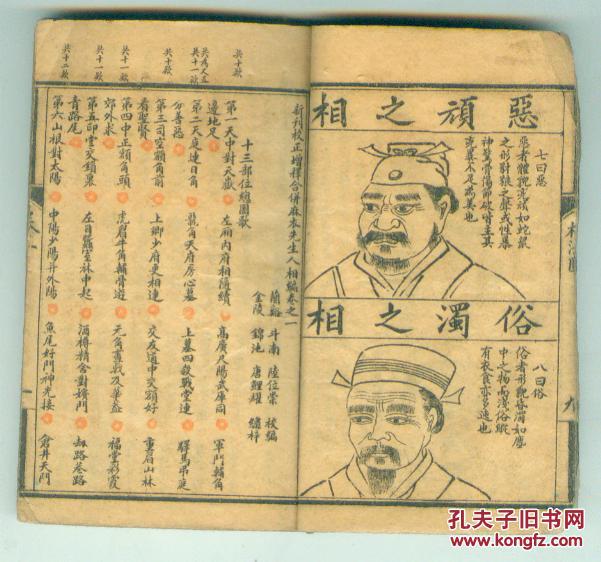 惡頑之相
七曰惡
惡者體貌兇頑如蛇鼠
之形豺狼之聲或性暴
神驚骨傷節破皆主其
兇暴不足為美也
俗濁之相
八曰俗
俗者形貌昏濁如塵
中之物而淺俗縱
有衣食亦多迍也
相法圖
九
新刊校正增釋合併麻衣先生人相編卷之一
蘭谿 斗南 陸位崇 校編
金陵 錦池 唐鯉耀 繡梓
十三部位總圖歌
共十款
第一天中對天嶽 左廂內府相隨續 高廣尺陽武庫同 軍門輔角
邊地足
共十一款
第二天庭連日角 龍角天府房心墓 上墓四殺戰堂連 驛馬弔庭
分善惡
共十款
第三司空額角前 上卿少府更相連 交友道中交額好 重眉山林
看聖賢
共十一款
第四中正額角頭 虎眉牛角輔骨遊 元角斧戟及華蓋 福堂彩霞
郊外求
共十一款
第五印堂交鎖裏 左目蠶室林中起 酒樽精舍對嬪門 劫路巷路
青路尾
共十二款
第六山根對太陽 中陽少陽并外陽 魚尾奸門神光接 倉井天門
孔夫子旧书网
www.kongfz.com